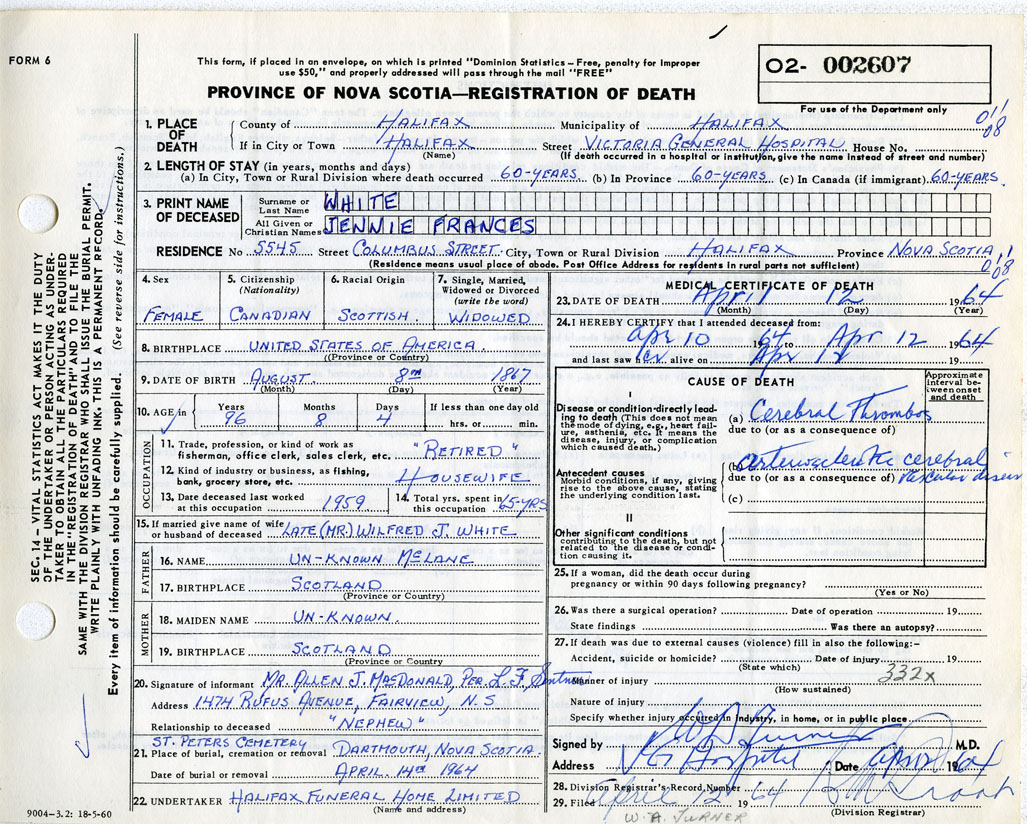 FORM 6
This form, if placed in an envelope, on which is printed "Dominion Statistics - Free, penalty for improper
use $50," and properly addressed will pass through the mail "FREE"
PROVINCE OF NOVA SCOTIA—REGISTRATION OF DEATH
02- 002607
For use of the Department only
SEC. 14 - VITAL STATISTICS ACT MAKES IT THE DUTY
OF THE UNDERTAKER OR PERSON ACTING AS UNDER-
TAKER TO OBTAIN ALL THE PARTICULARS REQUIRED
IN THE "REGISTRATION OF DEATH" AND TO FILE THE
SAME WITH THE DIVISION REGISTRAR WHO SHALL ISSUE THE BURIAL PERMIT.
WRITE PLAINLY WITH UNFADING INK. THIS IS A PERMANENT RECORD.
Every item of information should be carefully supplied. (See reverse side for instructions.)
1. PLACE OF DEATH County of HALIFAX Municipality of HALIFAX 011
If in City or Town HALIFAX Street VICTORIA GENERAL HOSPITAL House No. 08
(Name) (If death occurred in a hospital or institution, give the name instead of street and number)
2. LENGTH OF STAY (in years, months and days)
(a) In City, Town or Rural Division where death occurred 60-YEARS (b) In Province 60-YEARS (c) In Canada (if immigrant) 60-YEARS.
3. PRINT NAME OF DECEASED Surname or Last Name WHITE
All Given or Christian Names JENNIE FRANCES
RESIDENCE No 5545 Street COLUMBUS STREET. City, Town or Rural Division HALIFAX Province NOVA SCOTIA
(Residence means usual place of abode. Post Office Address for residents in rural parts not sufficient)
4. Sex 5. Citizenship (Nationality) 6. Racial Origin 7. Single, Married, Widowed or Divorced (write the word)
FEMALE CANADIAN SCOTTISH. WIDOWED
8. BIRTHPLACE UNITED STATES OF AMERICA.
(Province or Country)
9. DATE OF BIRTH AUGUST. 8TH 1867
(Month) (Day) (Year)
10. AGE in Years Months Days If less than one day old
96 8 4 hrs. or min.
OCCUPATION
11. Trade, profession, or kind of work as
fisherman, office clerk, sales clerk, etc. "RETIRED"
12. Kind of industry or business, as fishing,
bank, grocery store, etc. HOUSEWIFE
13. Date deceased last worked at this occupation 1959 14. Total yrs. spent in this occupation 65-YRS
15. If married give name of wife
or husband of deceased LATE (MR.) WILFRED J. WHITE
FATHER
16. NAME UN-KNOWN MCLANE
17. BIRTHPLACE SCOTLAND
(Province or Country)
MOTHER
18. MAIDEN NAME UN-KNOWN.
19. BIRTHPLACE SCOTLAND
(Province or Country
20. Signature of informant MR. ALLEN J. MACDONALD, PER. L.F.
Address 1474 RUFUS AVENUE, FAIRVIEW, N.S
Relationship to deceased "NEPHEW"
ST. PETERS CEMETERY
21. Place of burial, cremation or removal DARTMOUTH, NOVA SCOTIA.
Date of burial or removal APRIL. 14TH 1964
22. UNDERTAKER HALIFAX FUNERAL HOME LIMITED
(Name and address)
9004-3.2: 18-5-60
MEDICAL CERTIFICATE OF DEATH
23. DATE OF DEATH April 12 1964
(Month) (Day) (Year)
24. I HEREBY CERTIFY that I attended deceased from:
Apr 10 1964 to Apr 12 1964
and last saw her alive on Apr 12 19
CAUSE OF DEATH
Approximate interval between onset and death
I
Disease or condition-directly lead-
ing to death (This does not mean
the mode of dying, e.g., heart fail-
ure, asthenia, etc. It means the
disease, injury, or complication
which caused death.)
(a) Cerebral Thrombos
due to (or as a consequence of)
Antecedent causes
Morbid conditions, if any, giving
rise to the above cause, stating
the underlying condition last.
(b) arteriosclerotic cerebral
due to (or as a consequence of) vascular disease
(c)
II
Other significant conditions
contributing to the death, but not
related to the disease or condi-
tion causing it.
25. If a woman, did the death occur during
pregnancy or within 90 days following pregnancy?
(Yes or No)
26. Was there a surgical operation? Date of operation 19
State findings Was there an autopsy?
27. If death was due to external causes (violence) fill in also the following:-
Accident, suicide or homicide? Date of injury 19
(State which) 332x
Manner of injury
(How sustained)
Nature of injury
Specify whether injury occurred in industry, in home, or in public place
Signed by W A Turner M.D.
Address VG Hospital Date April 1964
28. Division Registrar's Record Number
29. Filed April 12 1964
(Division Registrar)
W. A. TURNER